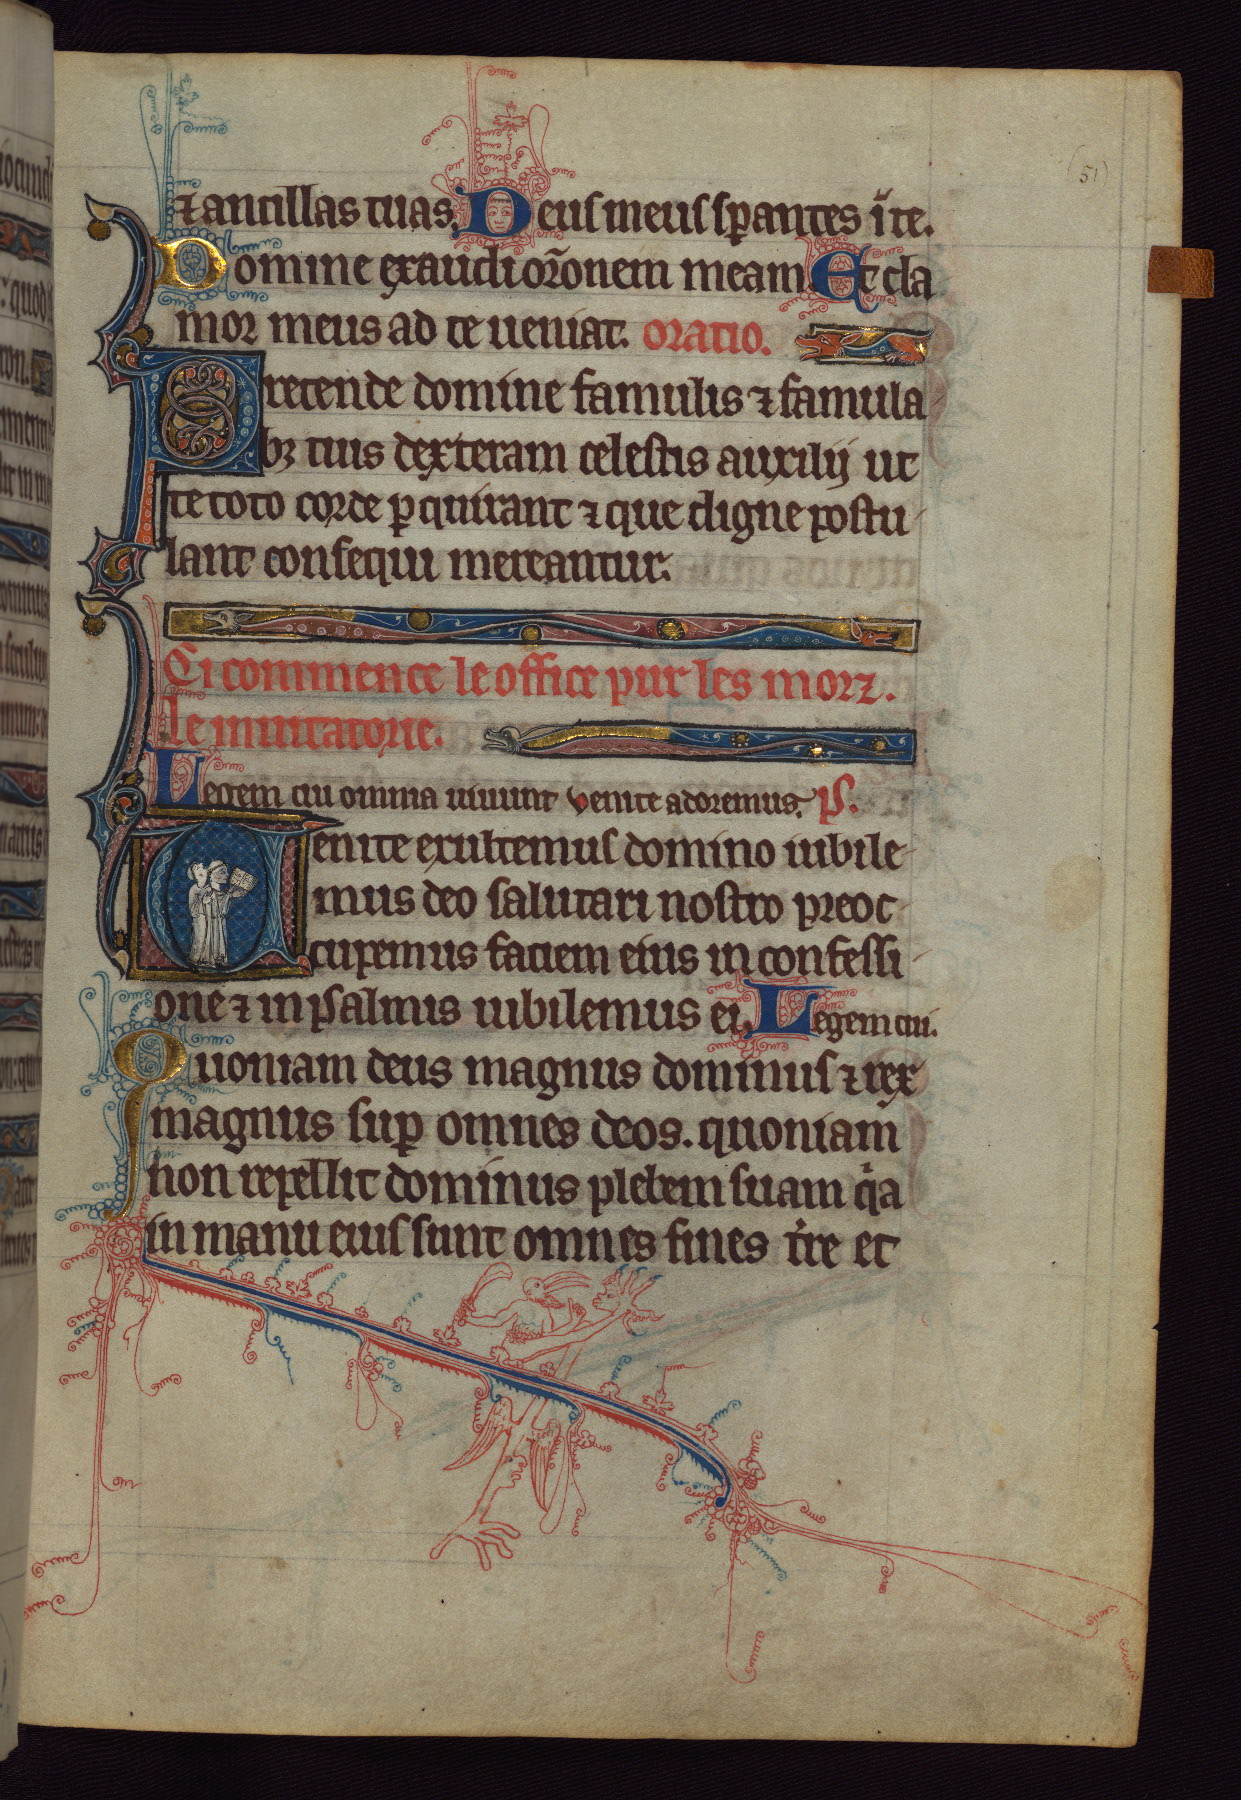 (51)
⁊ ancillas tuas. Deus meus sꝑantes ī te.
Domine exaudi orōnem meam Et cla
mor meus ad te ueniat. oratio.
Pretende domine famulis ⁊ famula
bꝫ tuis dexteram celestis auxilij ut
te toto corde ꝑquirant ⁊ que digne postu
lant consequi mereantur.
Ci commence le office pur les morz.
le inuitatorie.
Regem cui omnia uiuunt venite adoremus. ps.
Uenite exultemus domino iubile
mus deo salutari nostro preoc
cupemus faciem eius in confessi
one ⁊ in psalmis iubilemus ei. Regem cui.
Quoniam deus magnus dominus ⁊ rex
magnus suꝑ omnes deos. quoniam
non repellit dominus plebem suam qͥa
in manu eius sunt omnes fines t̄re et